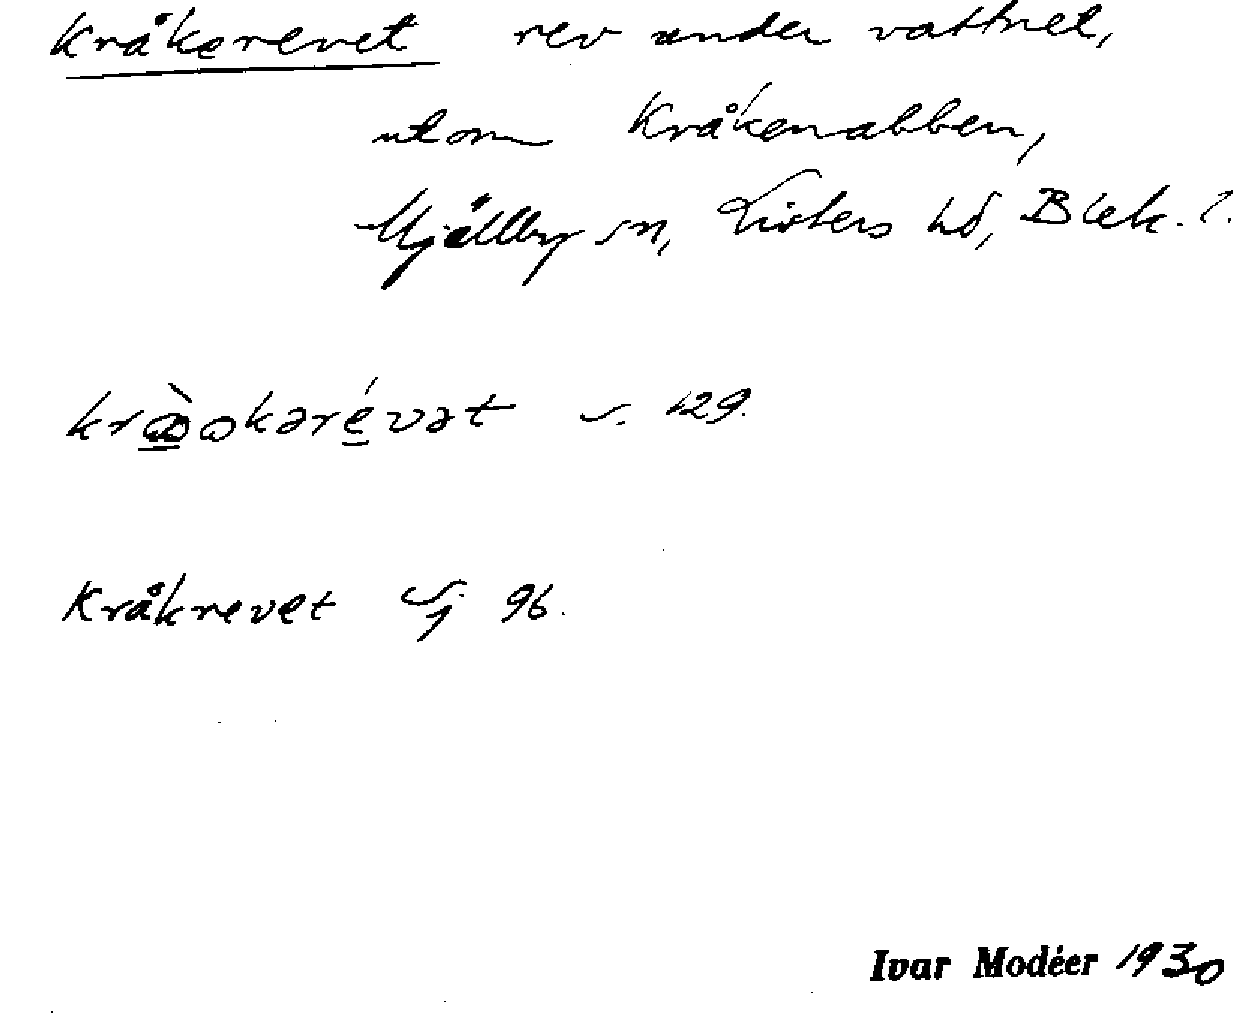 Kråkerevet rev under vattnet,
utom Kråkenabben,
Mjällby sn, Listers hd, Blek. l.
s. 129.
Kråkrevet Sj 96.
Ivar Modéer 1930